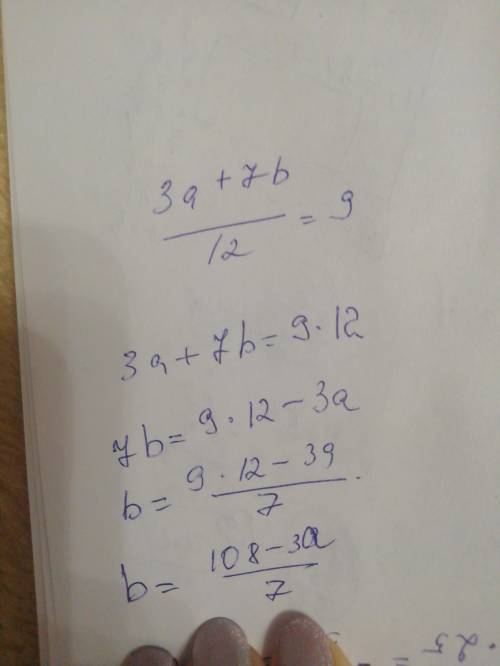 (3a + 7b)/12 = 9
3a + 7b = 9 · 12
7b = 9 · 12 - 3a
b = (9 · 12 - 3a)/7
b = (108 - 3a)/7